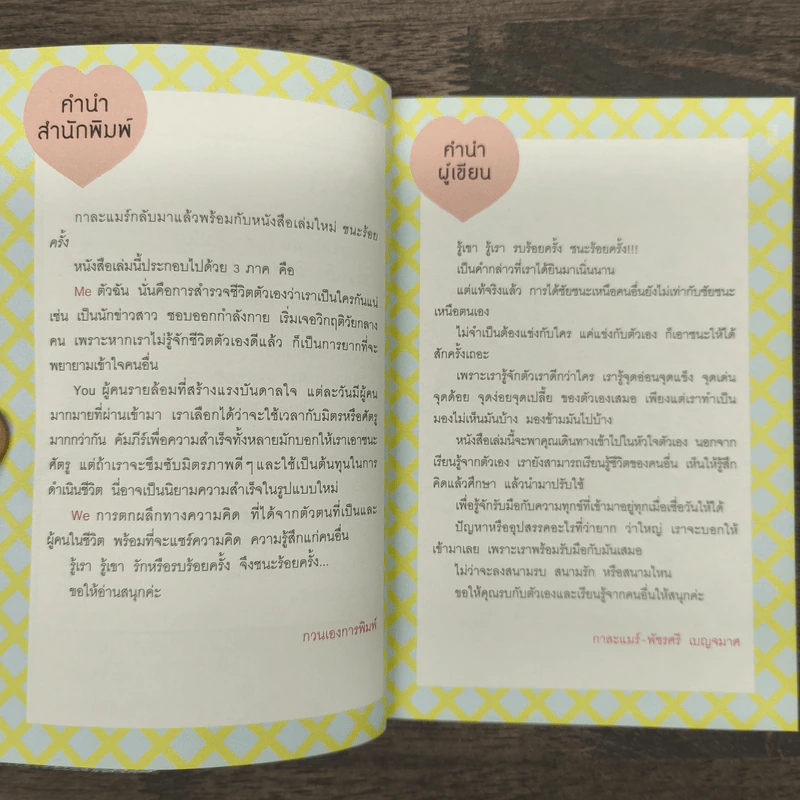 คำนำ
สำนักพิมพ์
กาละแมร์กลับมาแล้วพร้อมกับหนังสือเล่มใหม่ ชนะร้อย
ครั้ง
หนังสือเล่มนี้ประกอบไปด้วย 3 ภาค คือ
Me ตัวฉัน นั่นคือการสำรวจชีวิตตัวเองว่าเราเป็นใครกันแน่
เช่น เป็นนักข่าวสาว ชอบออกกำลังกาย เริ่มเจอวิกฤติวัยกลาง
คน เพราะหากเราไม่รู้จักชีวิตตัวเองดีแล้ว ก็เป็นการยากที่จะ
พยายามเข้าใจคนอื่น
You ผู้คนรายล้อมที่สร้างแรงบันดาลใจ แต่ละวันมีผู้คน
มากมายที่ผ่านเข้ามา เราเลือกได้ว่าจะใช้เวลากับมิตรหรือศัตรู
มากกว่ากัน คัมภีร์เพื่อความสำเร็จทั้งหลายมักบอกให้เราเอาชนะ
ศัตรู แต่ถ้าเราจะซึมซับมิตรภาพดีๆ และใช้เป็นต้นทุนในการ
ดำเนินชีวิต นี่อาจเป็นนิยามความสำเร็จในรูปแบบใหม่
We การตกผลึกทางความคิด ที่ได้จากตัวตนที่เป็นและ
ผู้คนในชีวิต พร้อมที่จะแชร์ความคิด ความรู้สึกแก่คนอื่น
รู้เรา รู้เขา รักหรือรบร้อยครั้ง จึงชนะร้อยครั้ง...
ขอให้อ่านสนุกค่ะ
กวนเองการพิมพ์
คำนำ
ผู้เขียน
รู้เขา รู้เรา รบร้อยครั้ง ชนะร้อยครั้ง!!!
เป็นคำกล่าวที่เราได้ยินมาเนิ่นนาน
แต่แท้จริงแล้ว การได้ชัยชนะเหนือคนอื่นยังไม่เท่ากับชัยชนะ
เหนือตนเอง
ไม่จำเป็นต้องแข่งกับใคร แค่แข่งกับตัวเอง ก็เอาชนะให้ได้
สักครั้งเถอะ
เพราะเรารู้จักตัวเราดีกว่าใคร เรารู้จุดอ่อนจุดแข็ง จุดเด่น
จุดด้อย จุดง่อยจุดเปลี้ย ของตัวเองเสมอ เพียงแต่เราทำเป็น
มองไม่เห็นมันบ้าง มองข้ามมันไปบ้าง
หนังสือเล่มนี้จะพาคุณเดินทางเข้าไปในหัวใจตัวเอง นอกจาก
เรียนรู้จากตัวเอง เรายังสามารถเรียนรู้ชีวิตของคนอื่น เห็นให้รู้สึก
คิดแล้วศึกษา แล้วนำมาปรับใช้
เพื่อรู้จักรับมือกับความทุกข์ที่เข้ามาอยู่ทุกเมื่อเชื่อวันให้ได้
ปัญหาหรืออุปสรรคอะไรที่ว่ายาก ว่าใหญ่ เราจะบอกให้
เข้ามาเลย เพราะเราพร้อมรับมือกับมันเสมอ
ไม่ว่าจะลงสนามรบ สนามรัก หรือสนามไหน
ขอให้คุณรบกับตัวเองและเรียนรู้จากคนอื่นให้สนุกค่ะ
กาละแมร์-พัชรศรี เบญจมาศ